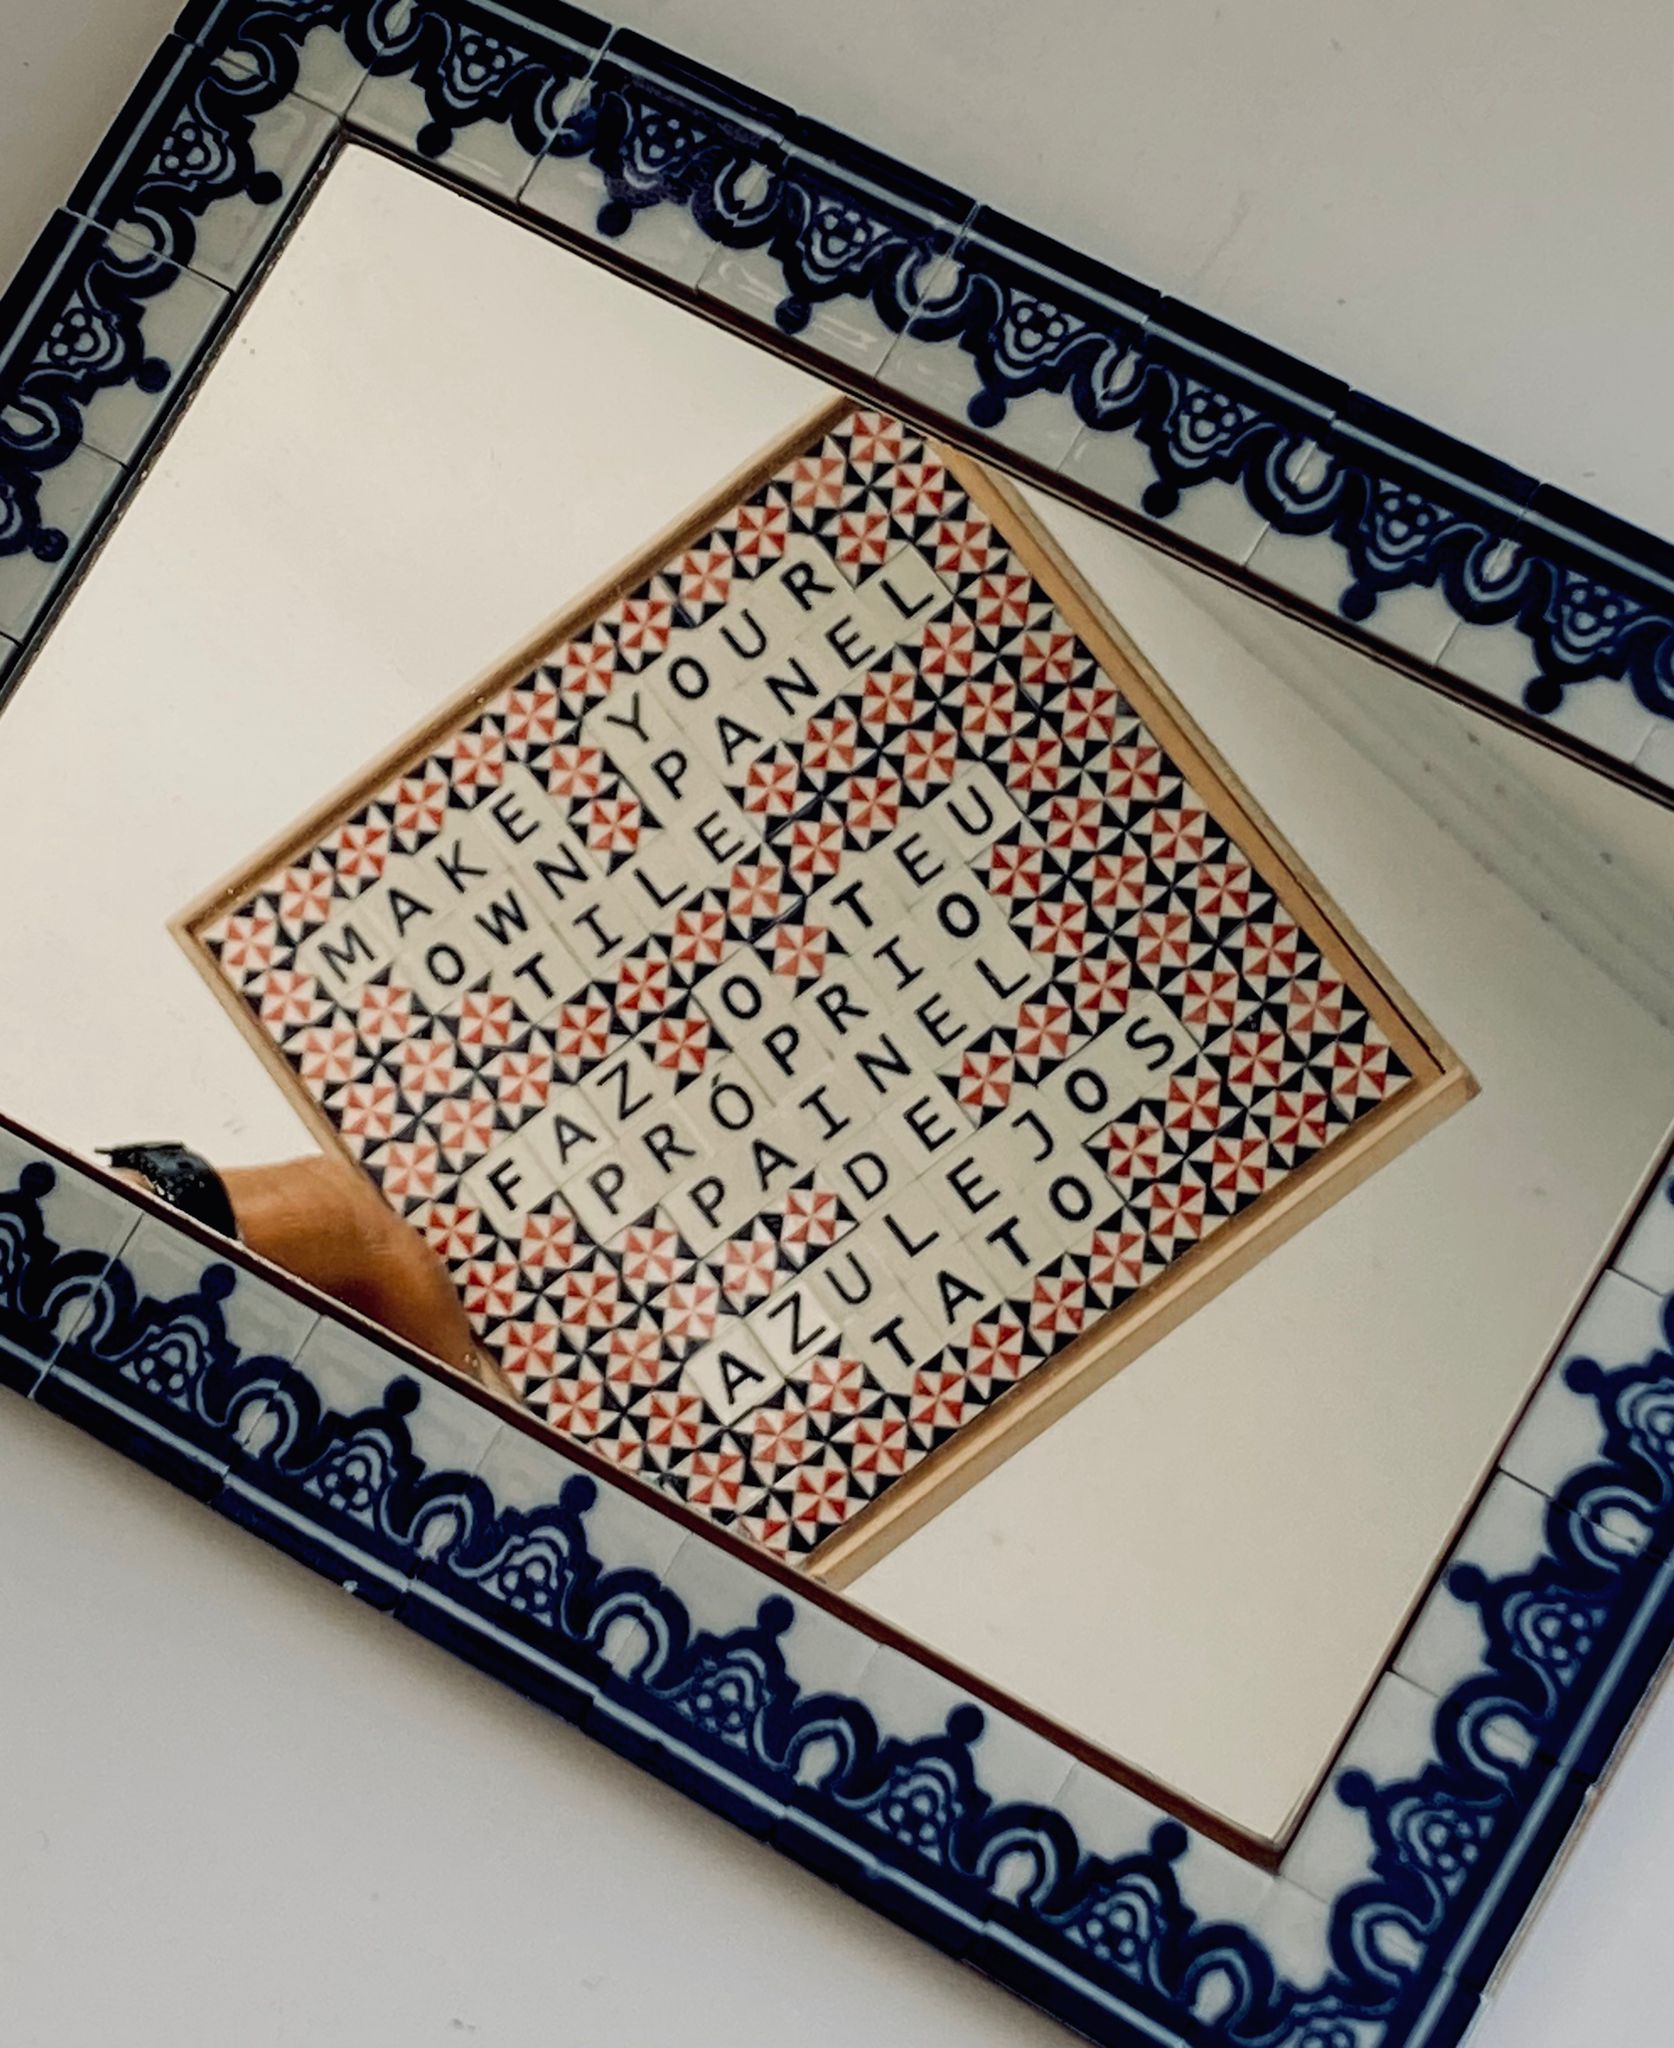 MAKE YOUR
OWN PANEL
TILE
FAZ O TEU
PRÓPRIO
PAINEL
DE
AZULEJOS
TATO